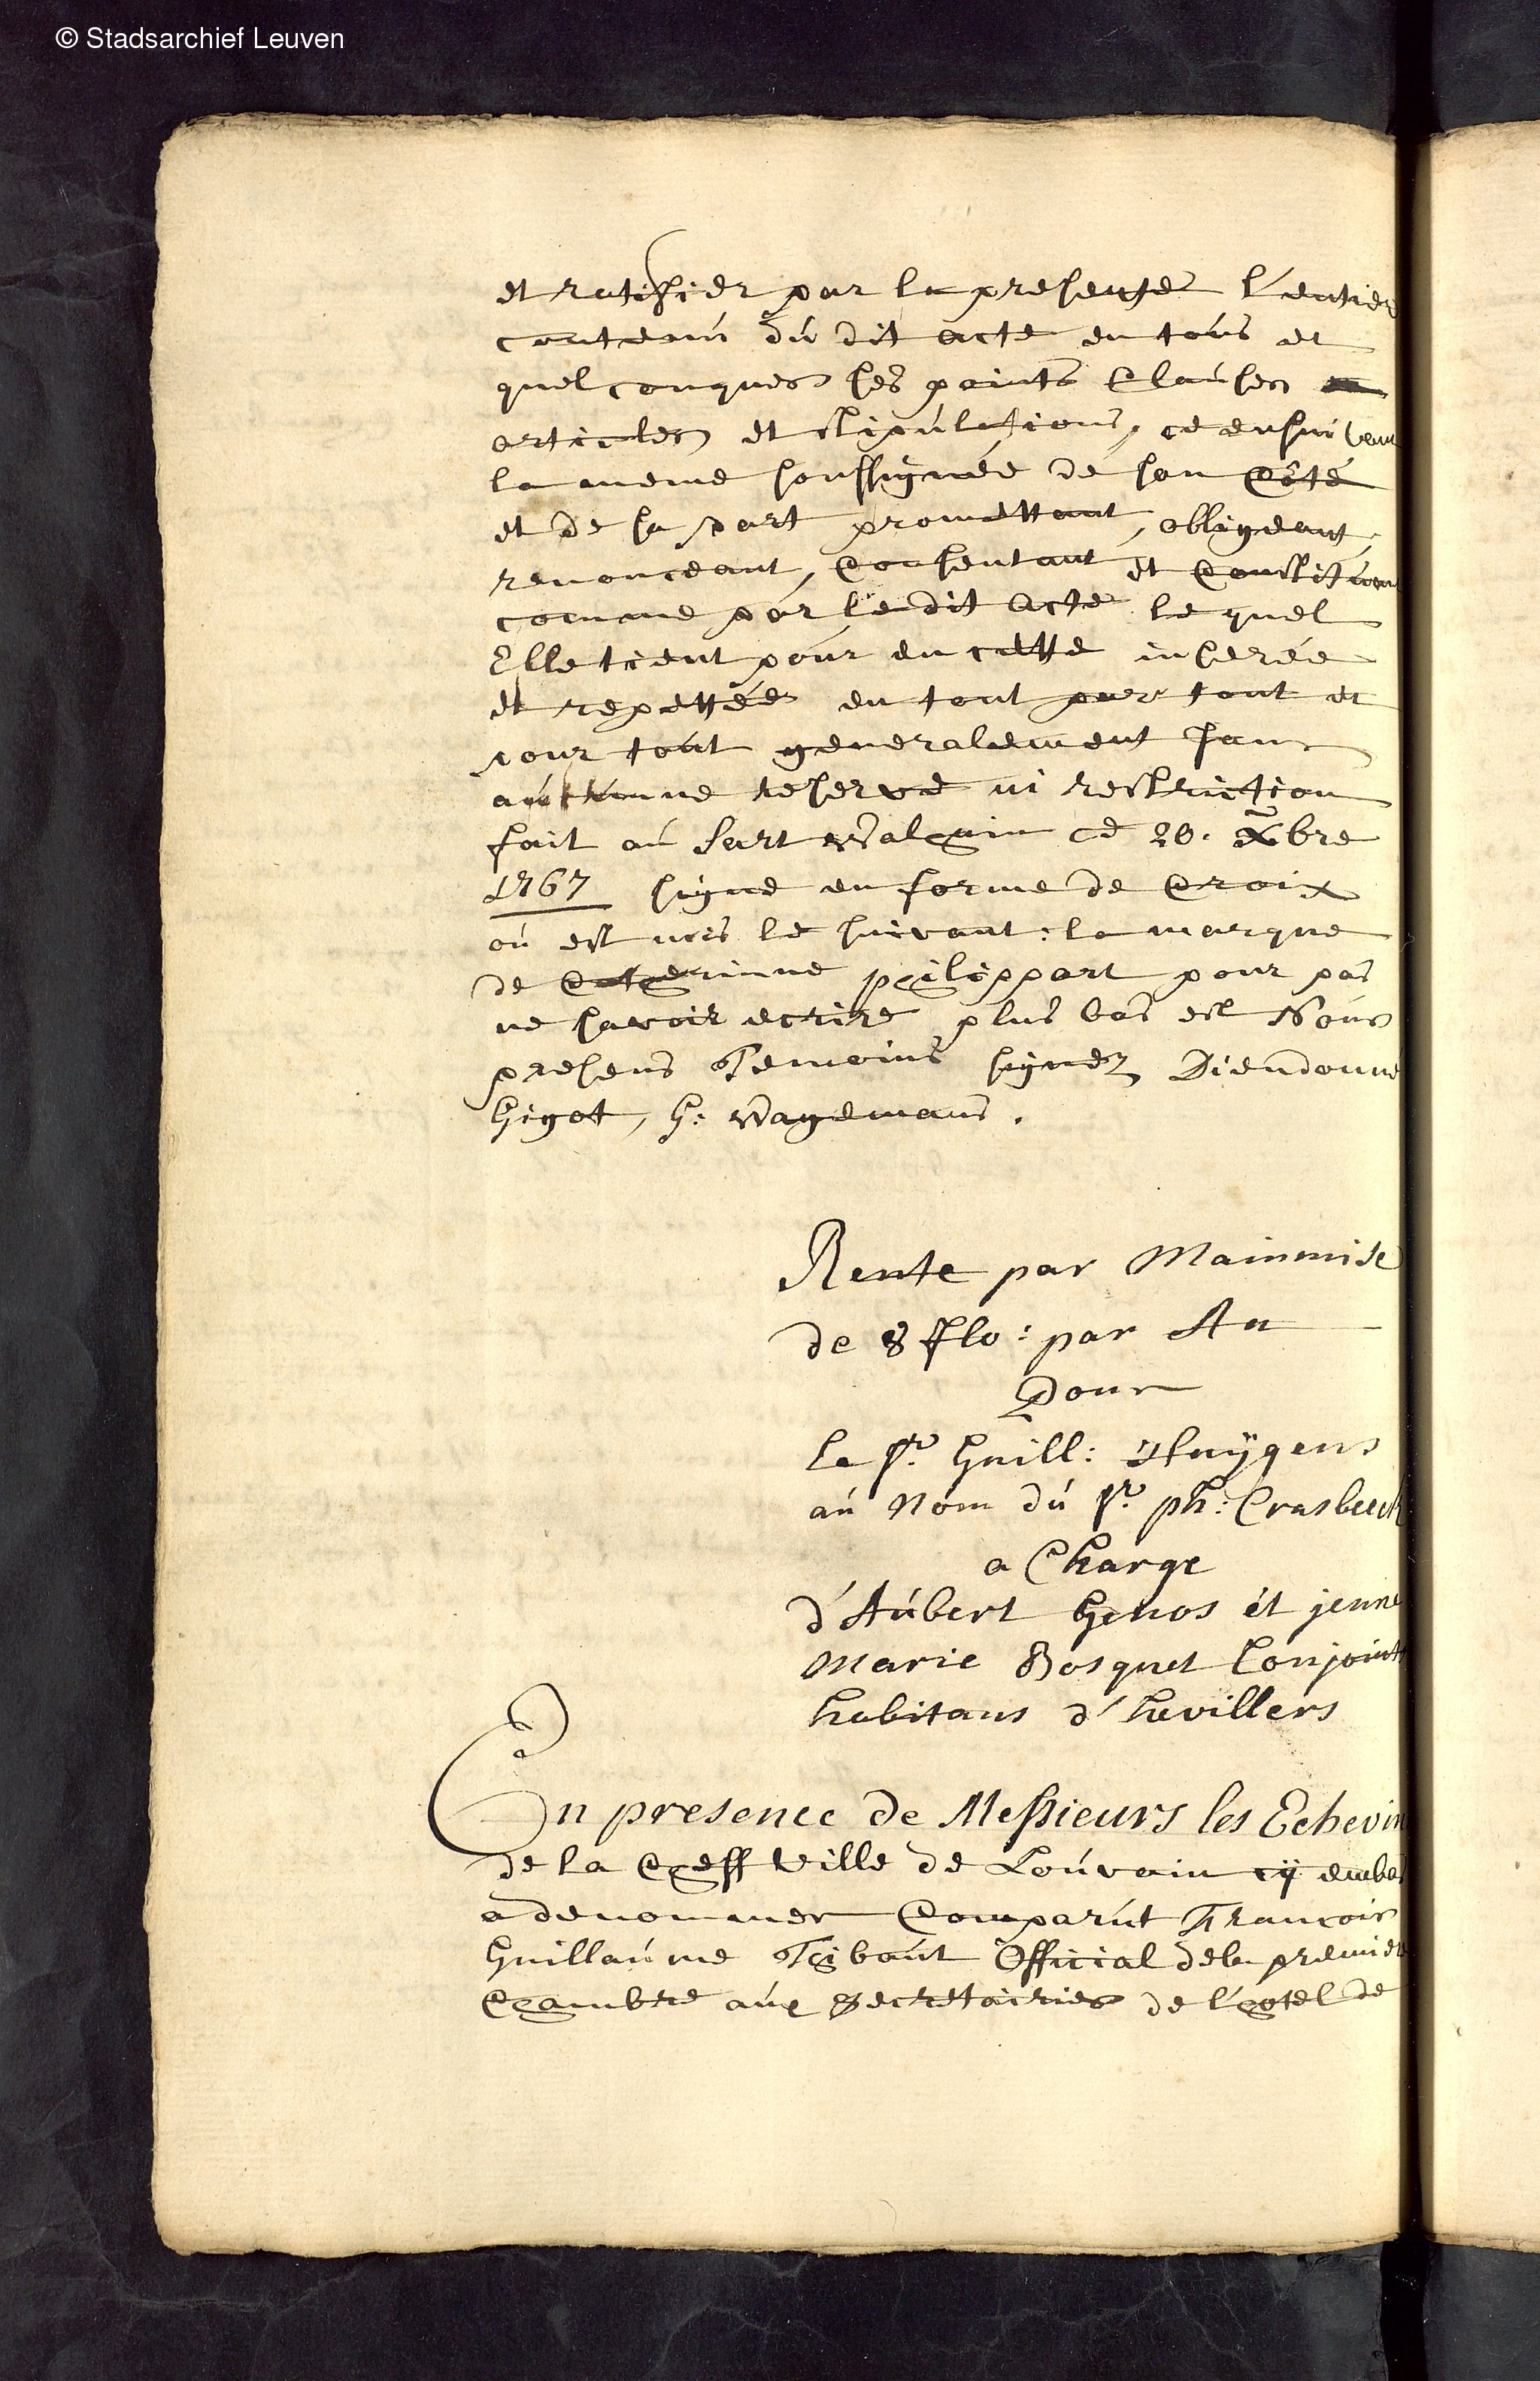 © Stadsarchief Leuven
et ratifier par la presente l'entier
contenu dú dit acte en toús et
quelconques ses points Clauses
articles et stipúlations, ce ensuivant
la meme soussignée de son Côté
et de sa part promettant, obligeant,
renonceant, Consentant et Constitúant
comme par le dit Acte le quel
Elle tient poúr en cette inserée
et repettée en tout par tout et
pour toút generalement sans
aúcunne reserve ni restriction
fait aú Sart Walhain ce 20. Xbre
1767 signe en forme de Croix
oú est mis le suivant: la marque
de Catherinne philippart pour pas
ne savoir ecrire plus bas est Nous
presens Temoins signez Dieudonné
Gigot, G: Wagemans.
Rente par Mainmise
de 8 flo: par An
Pour
Le Sr. Guill: Huÿgens
aú Nom dú Sr. ph: Crasbeeck
a Charge
d'Aúbert Genos ét jenne
Marie Bosquet Conjoints
habitans d'hevillers
En presence de Messieurs les Echevins
de la Cheff Ville de Loúvain cÿ embas
a denommer Comparút Francois
Guillaúme Thibaút Official dela premiere
Chambre aúx Secretairies de l'hotel de